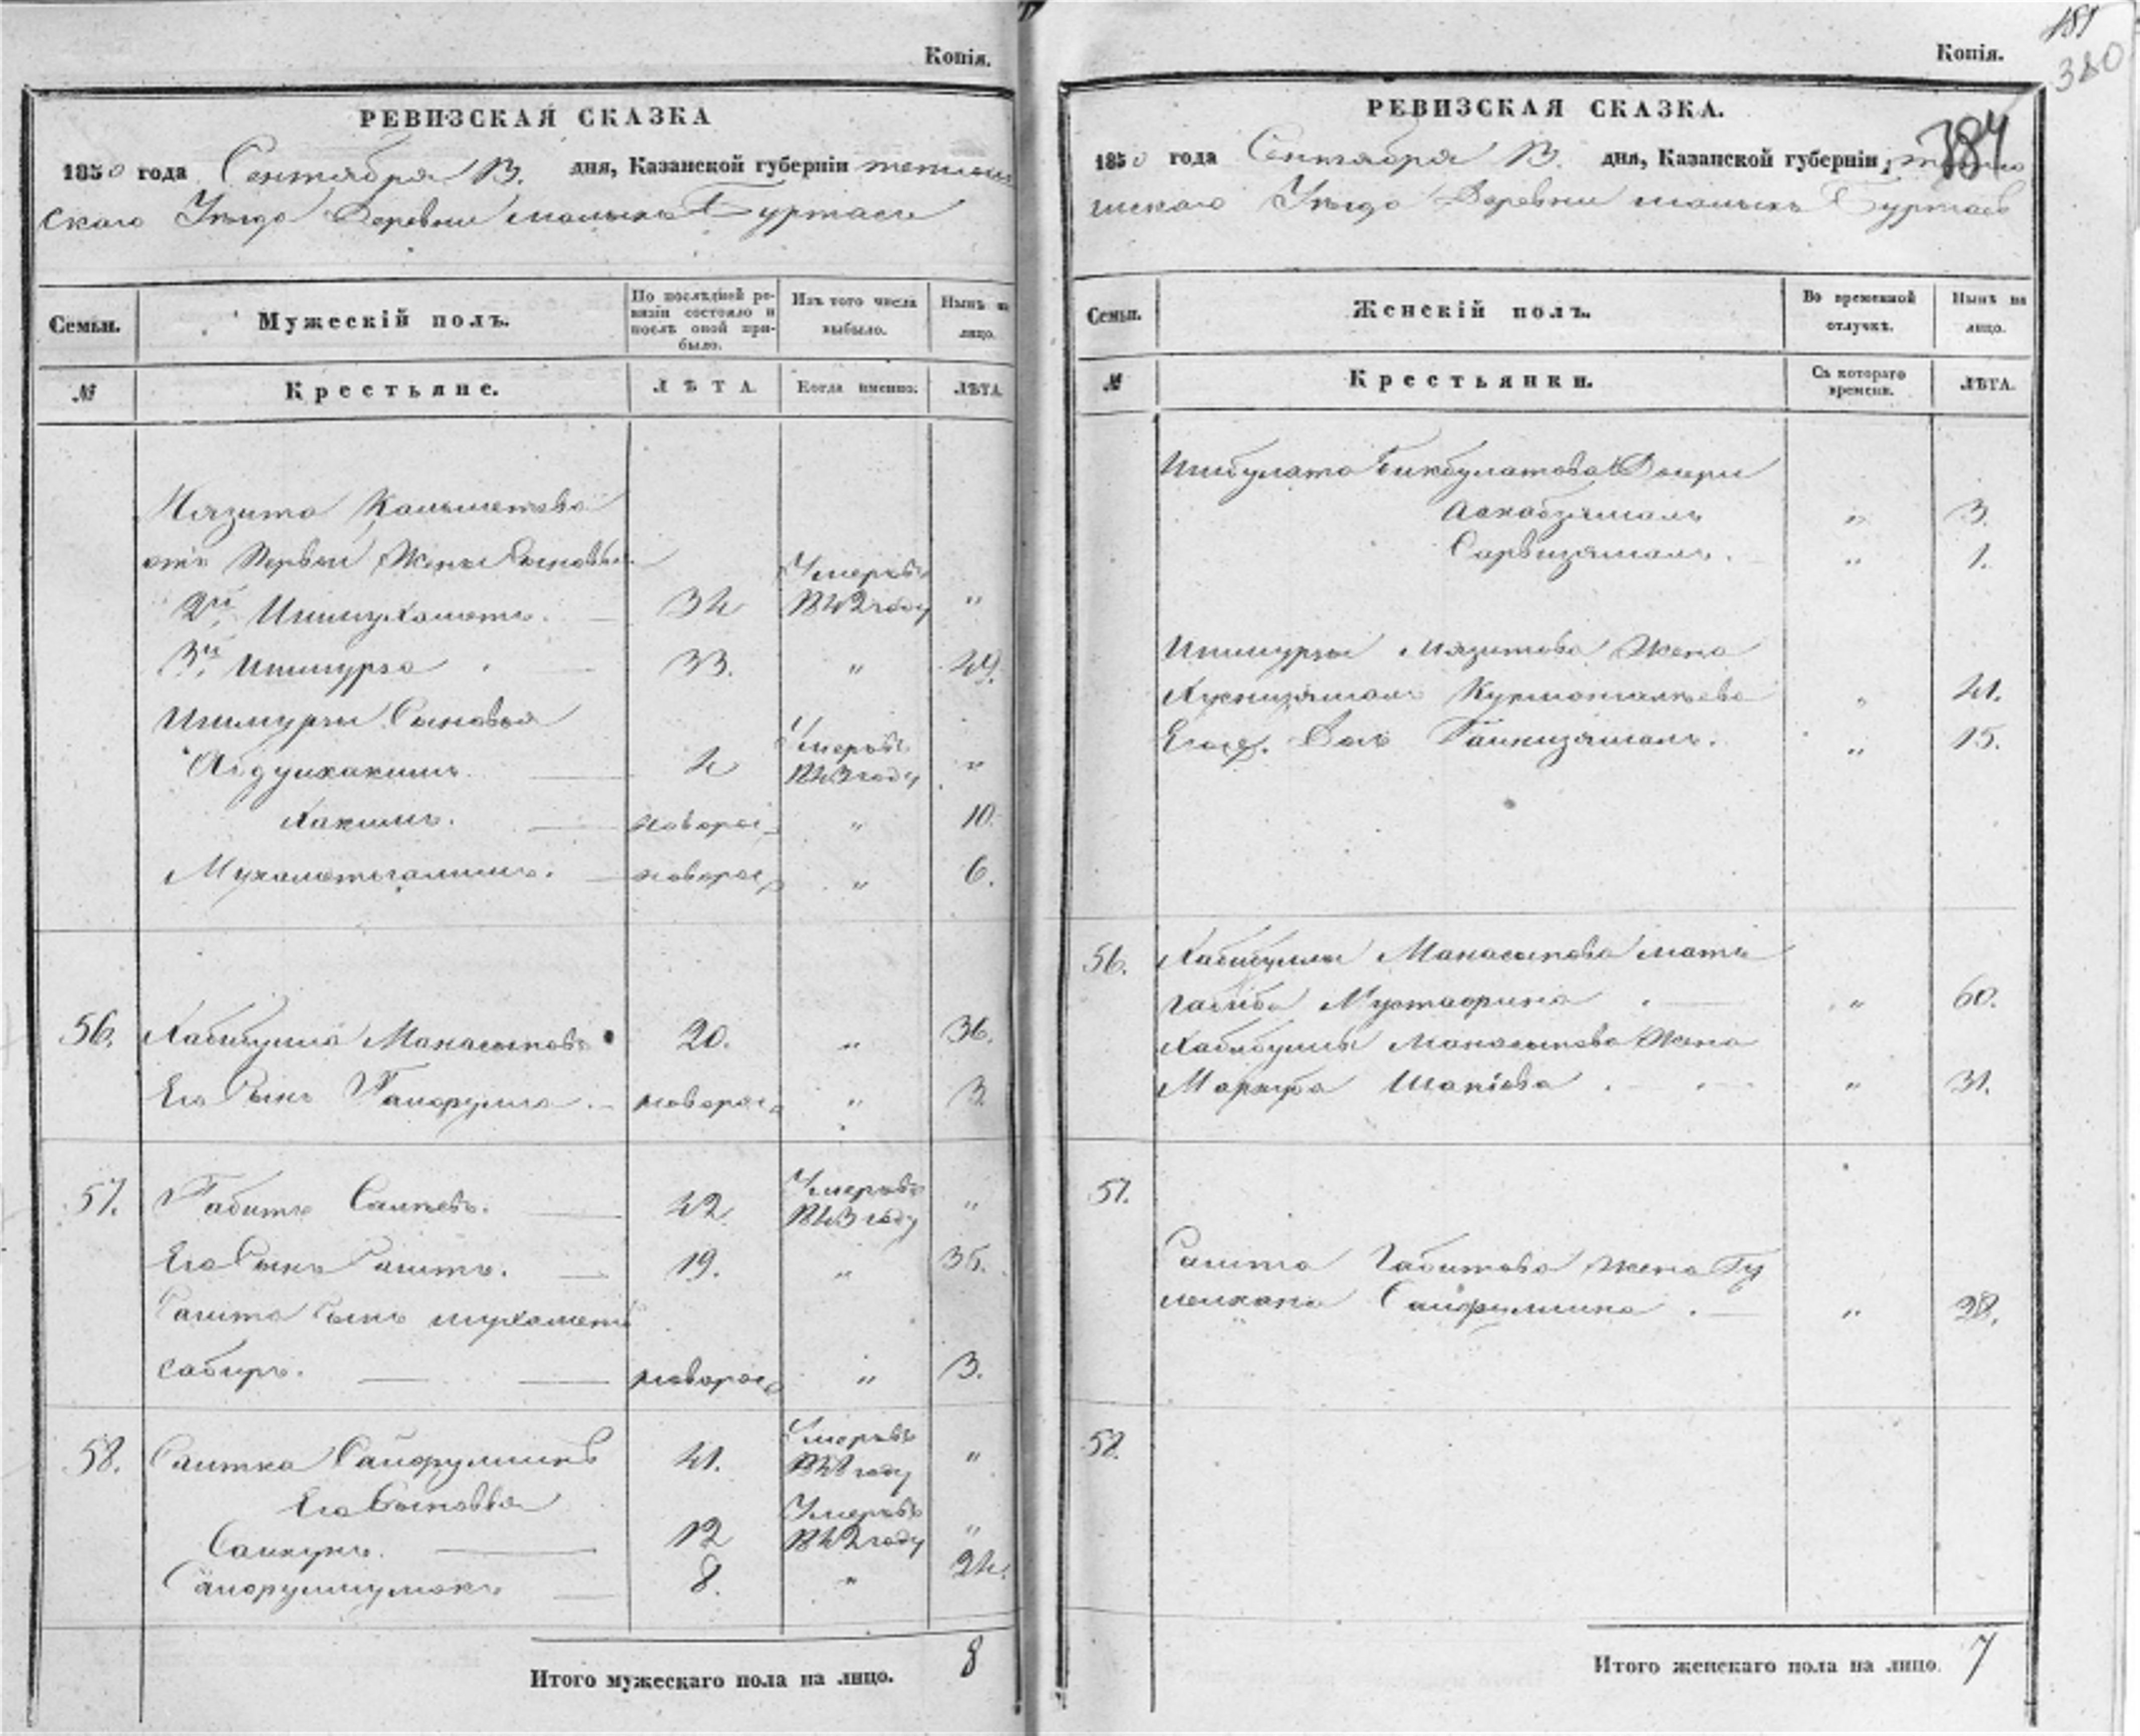 Копія.
РЕВИЗСКАЯ СКАЗКА
1850 года Сентября 13. дня, Казанской губерніи тетюш
скаго Уезда Деревни малыхъ Буртасъ
Семьи.
Мужескій полъ.
По послѣдней ре-
визіи состояло и
послѣ оной при-
было.
Изъ того числа
выбыло.
Нынѣ на
лицо.
№
Крестьяне.
ЛѢТА.
Когда именно.
ЛѢТА.
Мязита
отъ Первой Жены Сыновья
2й Ишмухаметъ. 34 Умеръ въ 1842 году "
3й Ишмурза 33. " 49.
Ишмурзы Сыновья
Абдулхакимъ. 4 Умеръ въ 1843 году "
Хакимъ. новорож " 10.
Мухаметгалимъ. новорож " 6.
56. Хабибулла Манасыповъ 20. " 36.
Его Сынъ новорож " 3
57. Габитъ 42 Умеръ въ 1843 году "
Его Сынъ Сагитъ. 19. " 35.
Сагита Сынъ мухаметъ
сабиръ. новорож " 3.
58. Саитка Сайфуллинъ 41. Умеръ въ году "
Его Сыновья
12 Умеръ въ 1842 году "
8. " 24.
Итого мужескаго пола на лицо. 8
Копія.
380
384
РЕВИЗСКАЯ СКАЗКА.
1850 года Сентября 13. дня, Казанской губерніи,
шскаго Уезда Деревни малыхъ Буртасъ
Семьи.
Женскій полъ.
Во временной
отлучкѣ.
Нынѣ на
лицо.
№
Крестьянки.
Съ котораго
времени.
ЛѢТА.
Ишбулата Бикбулатова Дочери
" 3.
Сарвизямалъ. " 1.
Ишмурзы Мязитова Жена
" 41.
Его Дочь " 15.
56. Хабибуллы Манасыпова мать
Габиба " 60.
Хабибуллы Манасыпова Жена
" 31.
57.
Сагита Габитова жена Гу
Сайфуллина . " 28.
58.
Итого женскаго пола на лицо. 7